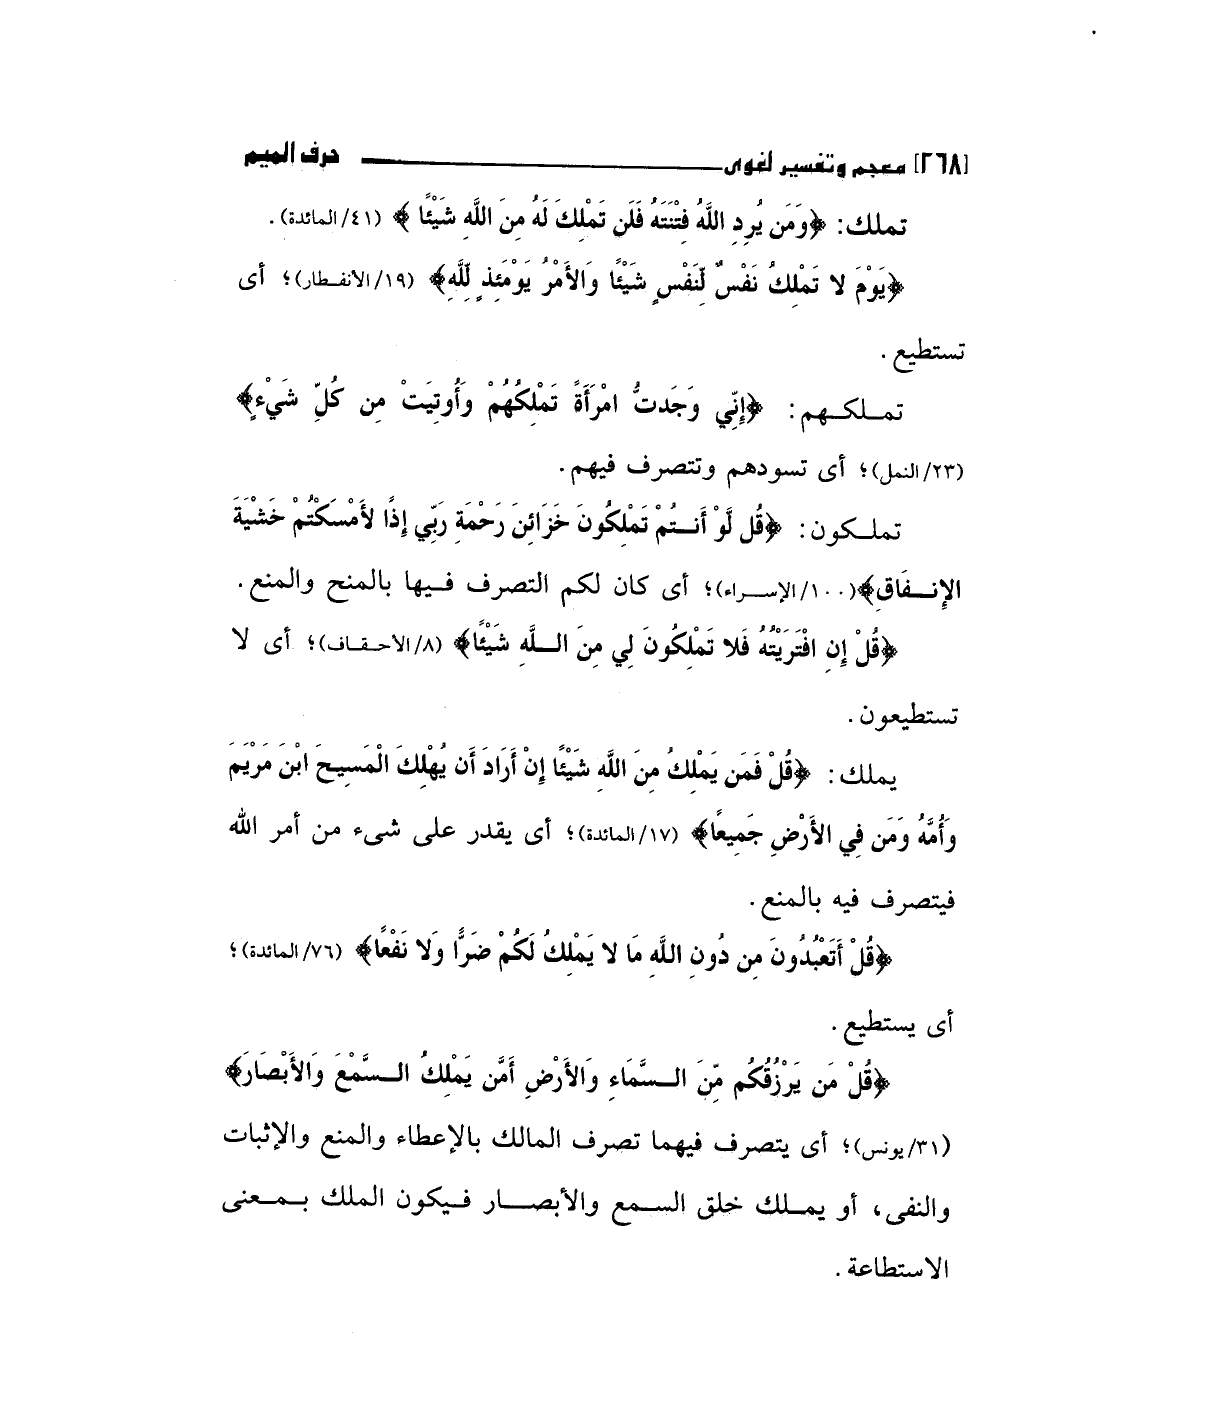 [٢٦٨] معجم وتفسير لغوى حرف الميم
تملك: ﴿وَمَن يُرِدِ اللَّهُ فِتْنَتَهُ فَلَن تَمْلِكَ لَهُ مِنَ اللَّهِ شَيْئًا﴾ (٤١/المائدة).
﴿يَوْمَ لا تَمْلِكُ نَفْسٌ لِّنَفْسٍ شَيْئًا وَالأَمْرُ يَوْمَئِذٍ لِّلَّهِ﴾ (١٩/الانفطار)؛ أى
تستطيع.
تملكهم: ﴿إِنِّي وَجَدتُّ امْرَأَةً تَمْلِكُهُمْ وَأُوتِيَتْ مِن كُلِّ شَيْءٍ﴾
(٢٣/النمل)؛ أى تسودهم وتتصرف فيهم.
تملكون: ﴿قُل لَّوْ أَنتُمْ تَمْلِكُونَ خَزَائِنَ رَحْمَةِ رَبِّي إِذًا لأَمْسَكْتُمْ خَشْيَةَ
الإِنفَاقِ﴾(١٠٠/الإسراء)؛ أى كان لكم التصرف فيها بالمنح والمنع.
﴿قُلْ إِنِ افْتَرَيْتُهُ فَلا تَمْلِكُونَ لِي مِنَ اللَّهِ شَيْئًا﴾ (٨/الاحقاف)؛ أى لا
تستطيعون.
يملك: ﴿قُلْ فَمَن يَمْلِكُ مِنَ اللَّهِ شَيْئًا إِنْ أَرَادَ أَن يُهْلِكَ الْمَسِيحَ ابْنَ مَرْيَمَ
وَأُمَّهُ وَمَن فِي الأَرْضِ جَمِيعًا﴾ (١٧/المائدة)؛ أى يقدر على شىء من أمر الله
فيتصرف فيه بالمنع.
﴿قُلْ أَتَعْبُدُونَ مِن دُونِ اللَّهِ مَا لا يَمْلِكُ لَكُمْ ضَرًّا وَلا نَفْعًا﴾ (٧٦/المائدة)؛
أى يستطيع.
﴿قُلْ مَن يَرْزُقُكُم مِّنَ السَّمَاءِ وَالأَرْضِ أَمَّن يَمْلِكُ السَّمْعَ وَالأَبْصَارَ﴾
(٣١/يونس)؛ أى يتصرف فيهما تصرف المالك بالإعطاء والمنع والإثبات
والنفى، أو يملك خلق السمع والأبصار فيكون الملك بمعنى
الاستطاعة.